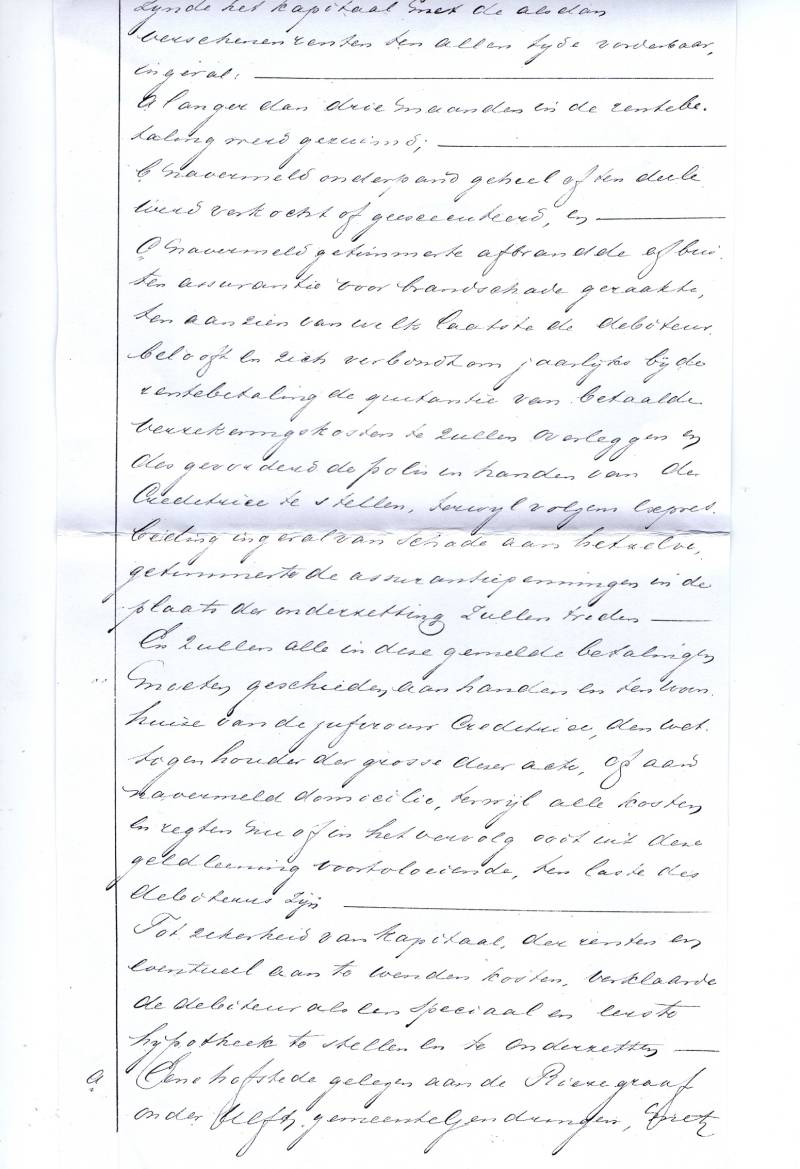 zynde het kapitaal met de alsdan
verschenen renten ten allen tyde vorderbaar,
ingeval:
A langer dan drie maanden in de rentebe-
taling werd gezuimd;
B navermeld onderpand geheel of ten deele
werd verkocht of geëxecuteerd, en
C navermeld getimmerte afbrandde of bui-
ten assurantie voor brandschade geraakte,
ten aanzien van welk laatste de debiteur
belooft en zich verbondt om jaarlyks by de
rentebetaling de quitantie van betaalde
verzekeringskosten te zullen overleggen en
des gevorderd de polis in handen van de
Creditrice te stellen, terwyl volgens
beding ingeval van schade aan hetzelve
getimmerte de assurantiepenningen in de
plaats der onderzetting zullen treden
En zullen alle in deze gemelde betalingen
moeten geschieden aan handen en ten woon-
huize van de jufvrouw Creditrice, den wet-
togen houder der grosse dezer acte, of aan
navermeld domicilie, terwijl alle kosten
en regten nu of in het vervolg ooit uit deze
geldleening voortvloeiende, ten laste des
debiteurs zijn
Tot zekerheid van kapitaal, der renten en
eventueel aan te wenden kosten, verklaarde
de debiteur als een speciaal en eerste
hypotheek te stellen en te onderzetten
a Eene hofstede gelegen aan de Riezegraaf
onder Ulft, gemeente Gendringen, met